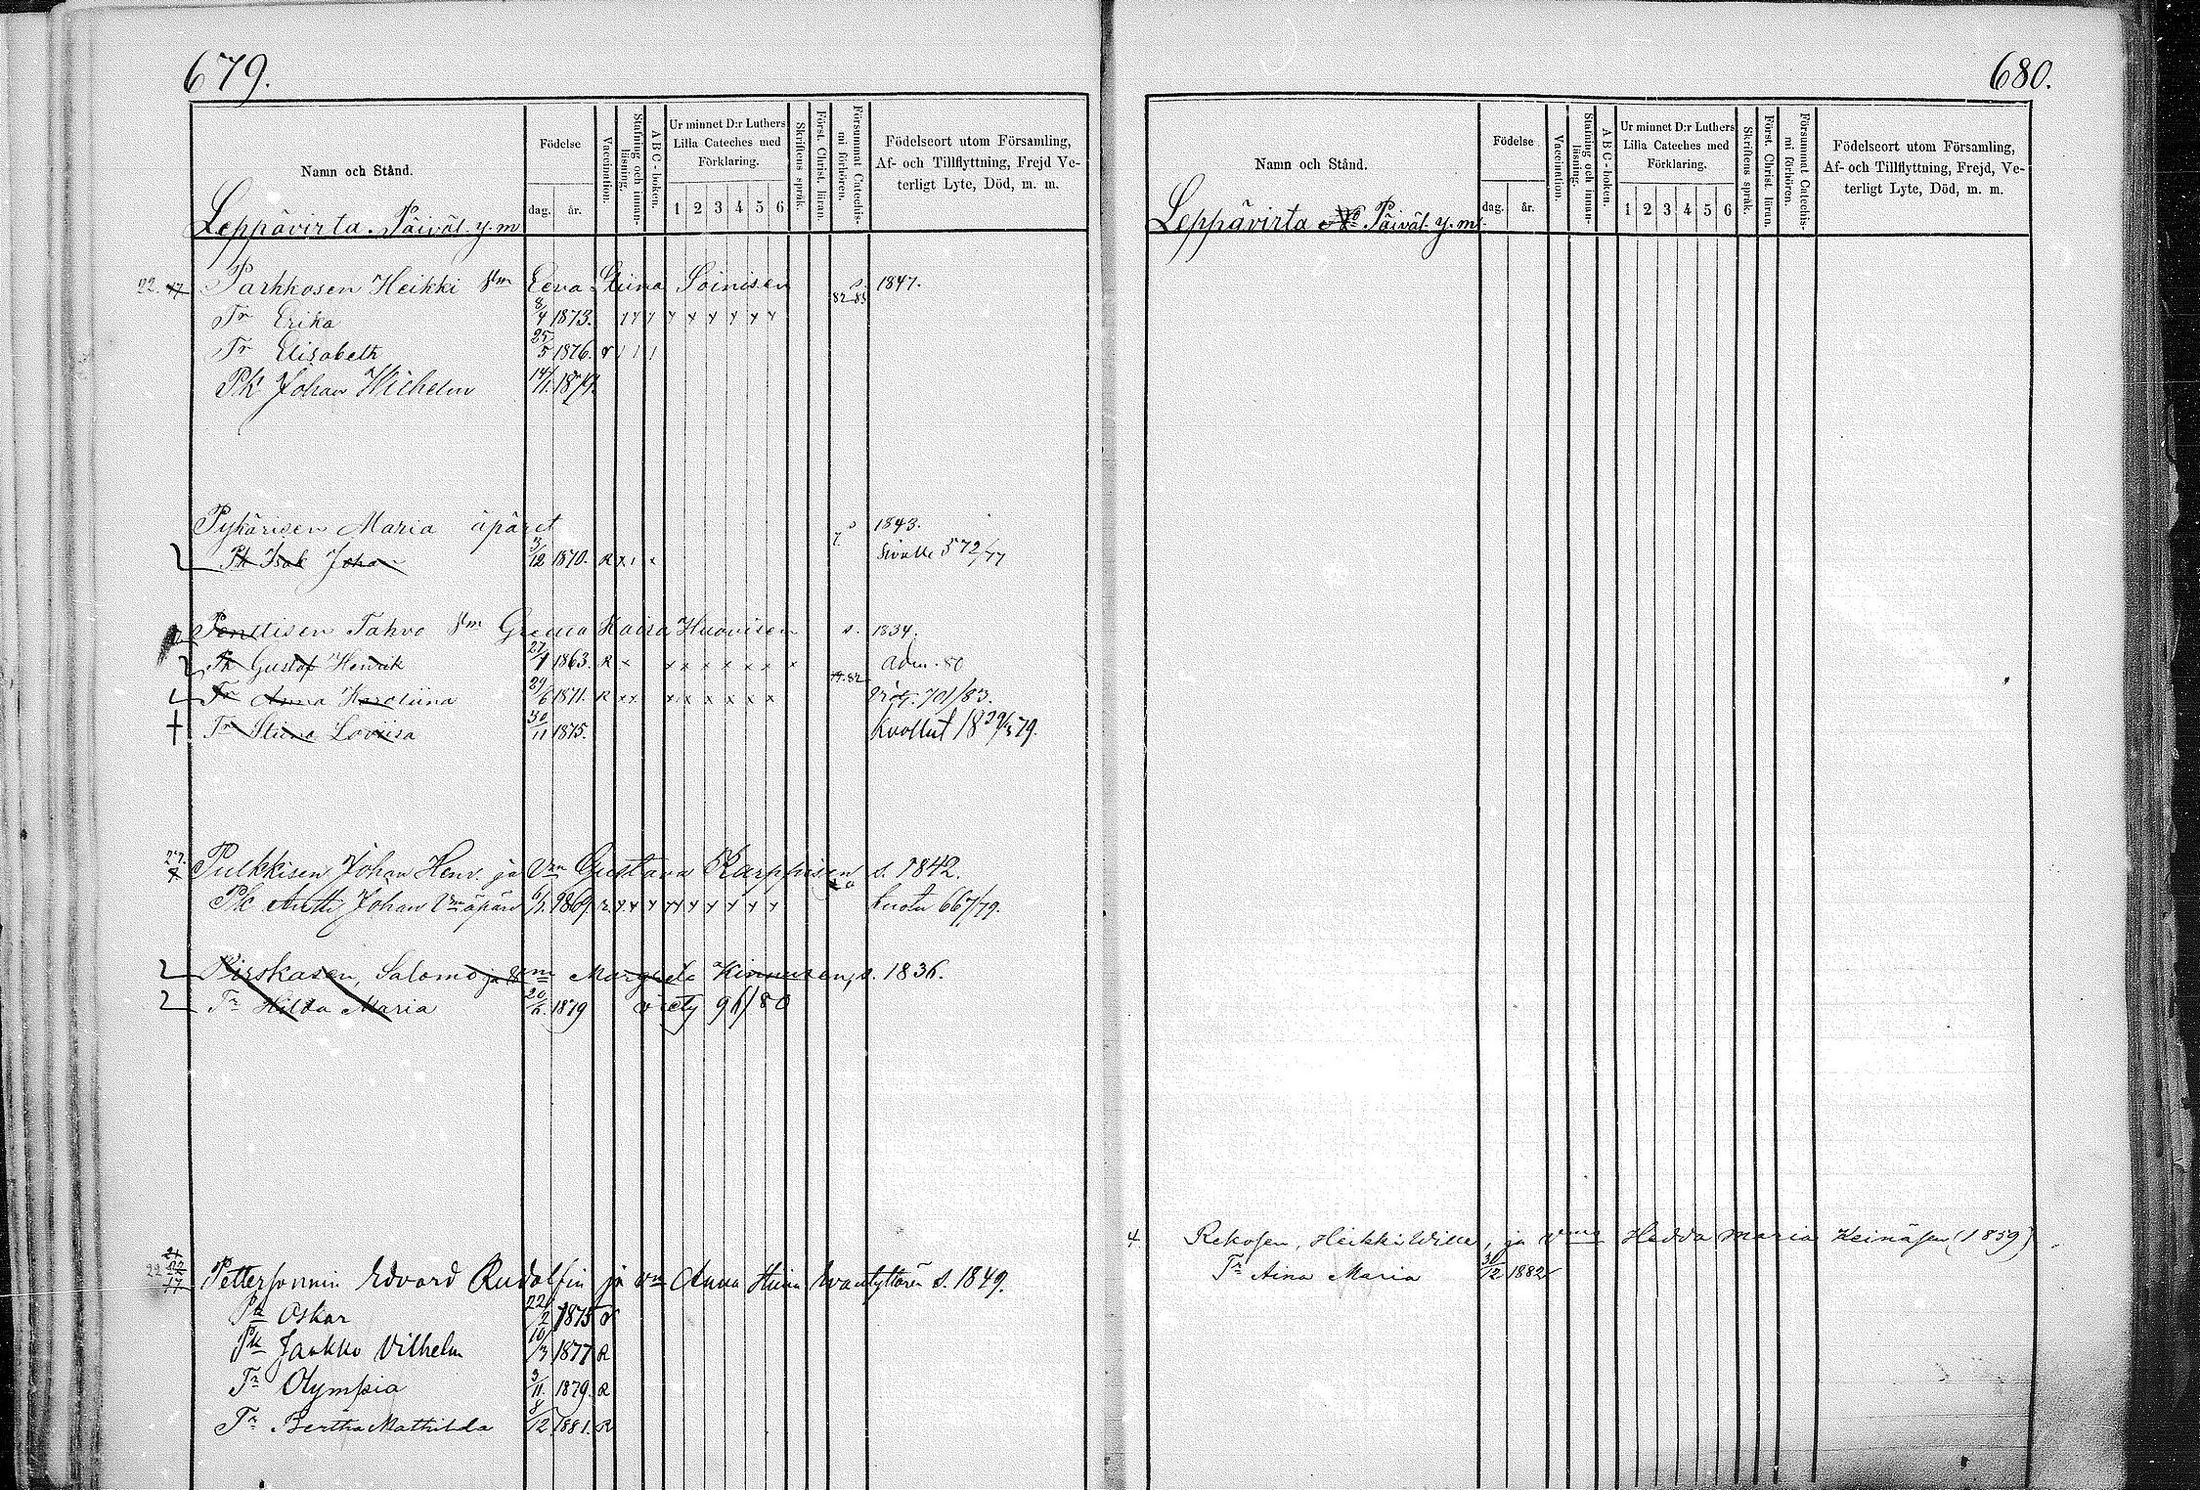 679.
Namn och Stånd.
Födelse
dag.
år.
Vaccination.
Stafning och innanläsning.
ABC-boken.
Ur minnet D:r Luthers Lilla Cateches med Förklaring.
1 2 3 4 5 6
Skriftens språk.
Först. Christ. läran.
Försummat Catechismi förhören.
Födelseort utom Församling, Af- och Tillflyttning, Frejd Veterligt Lyte, Död, m. m.
Leppävirta. Päiväl. y. m
22. 17 Parkkosen Heikki Vm Eeva Stiina Soinisen s. 1847.
82 83
Tr Erika 8/4 1873.
Tr Elisabeth 25/5 1876.
Pk Johan Wilhelm 14/11 1879.
Pykärisen Maria äpäret s 1843.
Pk Isak Johan 3/12 1870. R 572/77
Penttisen Tahvo Vm Greeta Kaisa Huovisen s. 1834.
Pk Gustaf Henrik 27/1 1863. R adm. 80
Tr Anna Karoliina 29/6 1871. R 701/83.
Tr Stiina Loviisa 30/11 1875. Kuollut 18 29/5 79.
27. Pulkkisen Johan Henr. ja Vm Gustava Karppisen s. 1842.
Pk Antti Johan Vm äpärä 6/1 1869. R. luotu 667/79.
Pirskasen, Salomo ja Vm Margeta Kinnusen, s. 1836.
Tr Hilda Maria 20/11 1879 viety 91/80
22 17 Petterssonnin Edvard Rudolfin ja vm Anna Stiina Evantyttären s. 1849.
Pk Oskar 22/2 1875
Pk Jaakko Vilhelm 10/3 1877 R
Tr Olympia 3/11 1879. R
Tr Bertha Mathilda 8/12 1881. R
680.
Namn och Stånd.
Födelse
dag.
år.
Vaccination.
Stafning och innanläsning.
ABC-boken.
Ur minnet D:r Luthers Lilla Cateches med Förklaring.
1 2 3 4 5 6
Skriftens språk.
Först. Christ. läran.
Försummat Catechismi förhören.
Födelseort utom Församling, Af- och Tillflyttning, Frejd, Veterligt Lyte, Död, m. m.
Leppävirta No Päiväl. y. m.
4. Rekosen, Heikki Wille, ja Vmo Hedda Maria Keinäsen (1859)
Tr Aina Maria 30/12 1882